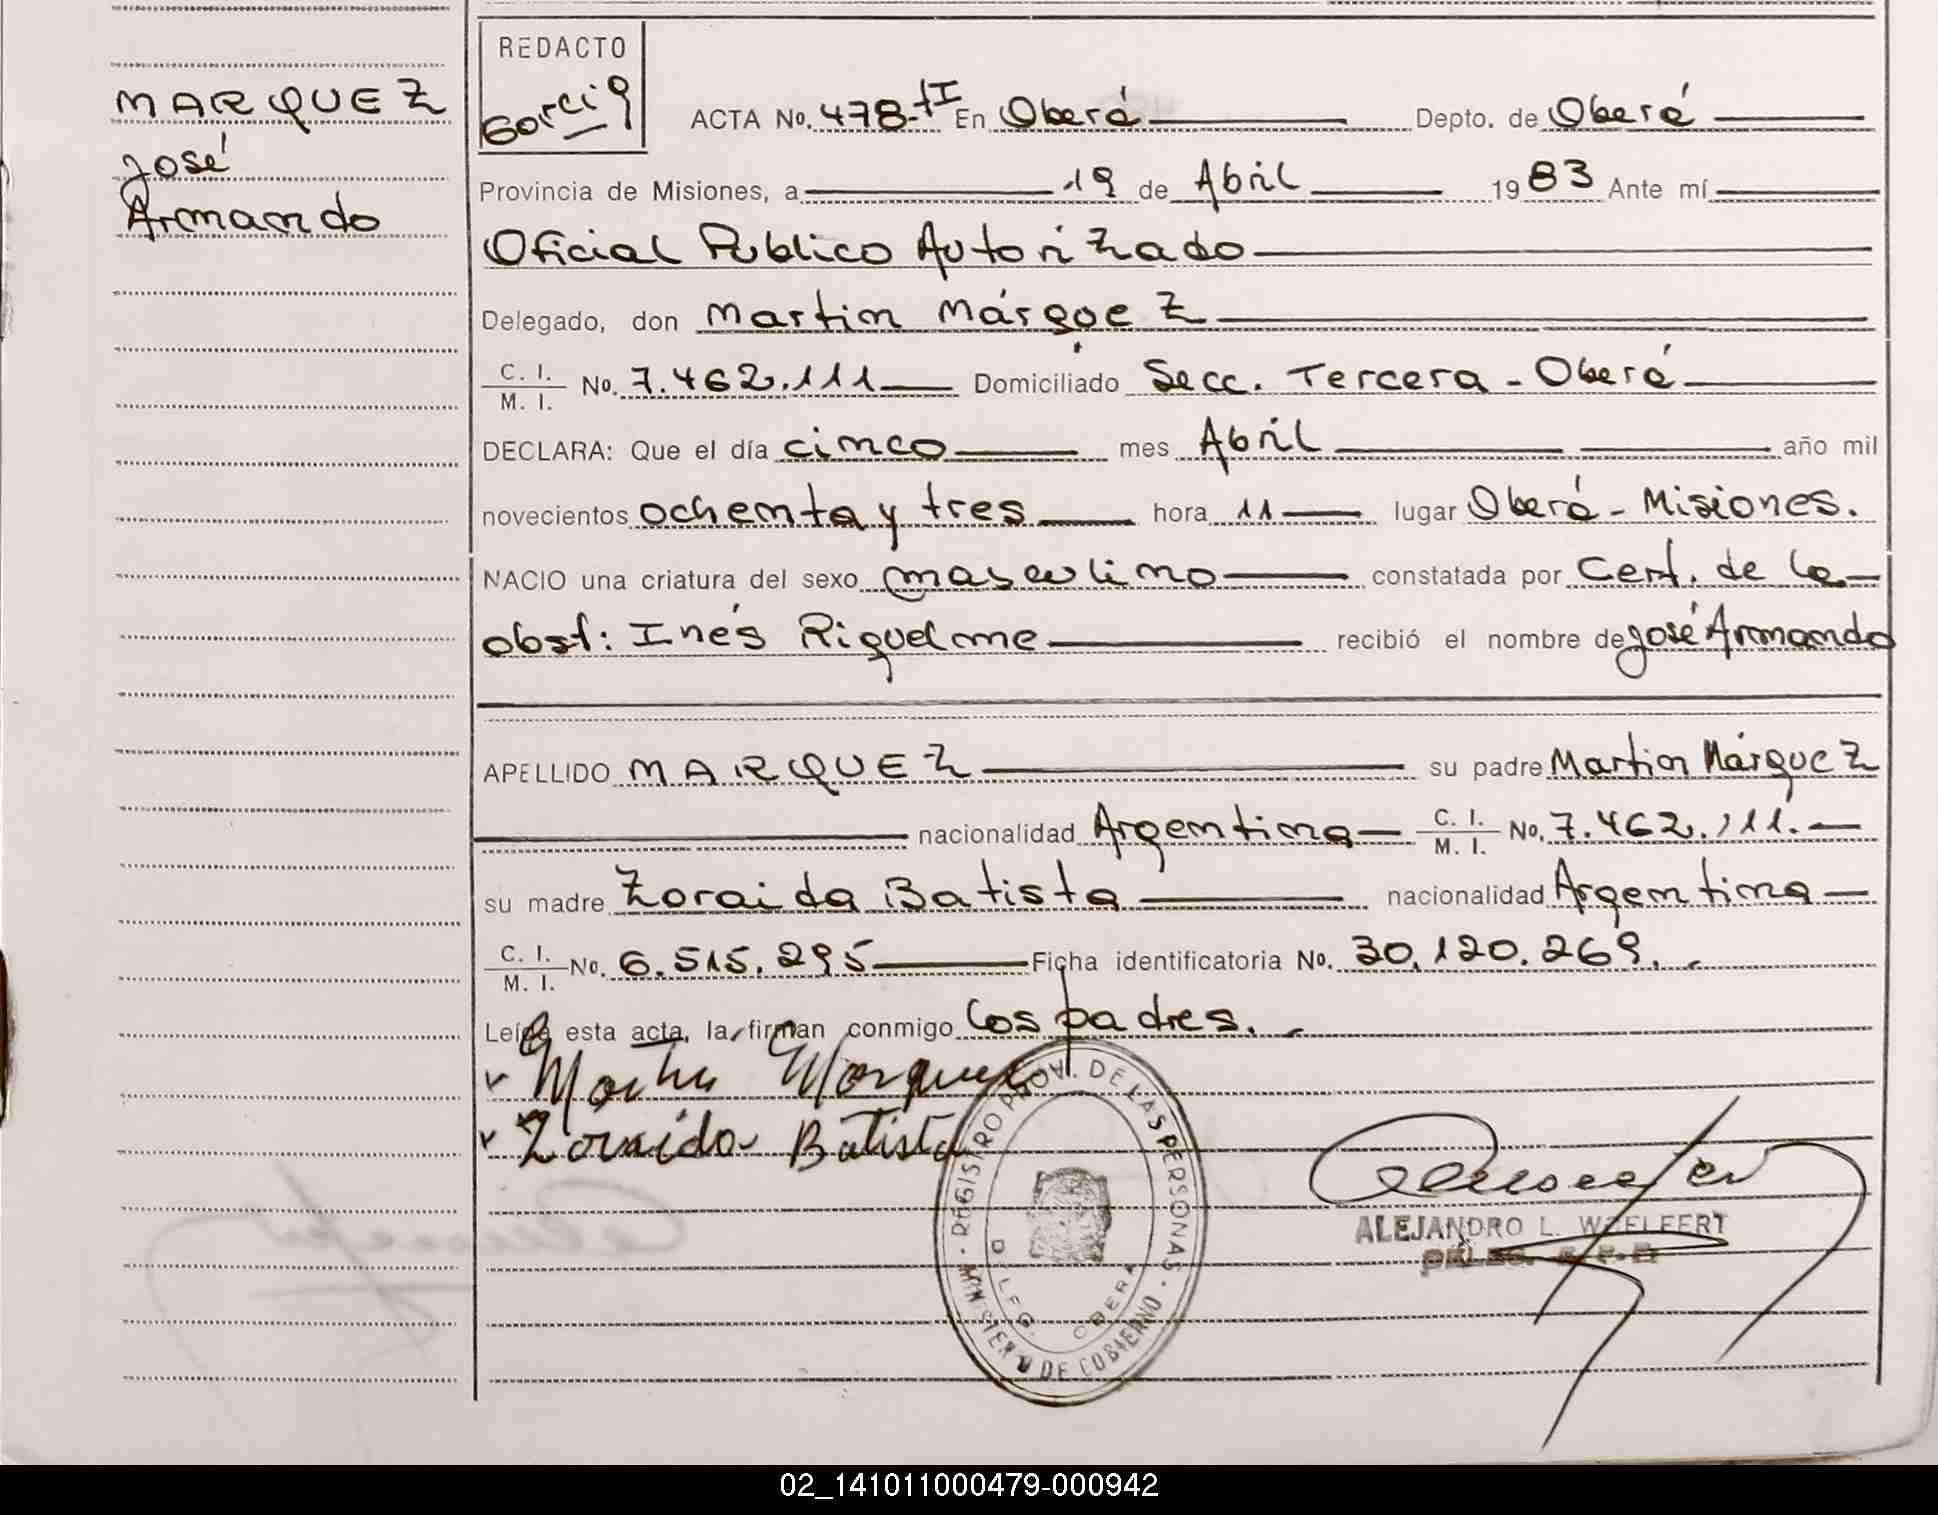 MARQUEZ
José
Armando
REDACTO
Garcia
ACTA No. 478-tI En Oberá Depto. de Oberá
Provincia de Misiones, a 19 de Abril 1983 Ante mí
Oficial Publico Autorizado
Delegado, don Martin Márquez
C. I. / M. I. No. 7.462.111 Domiciliado Secc. Tercera - Oberá
DECLARA: Que el día cinco mes Abril año mil
novecientos ochenta y tres hora 11 lugar Oberá - Misiones.
NACIO una criatura del sexo masculino constatada por Cert. de la
obst: Inés Riquelme recibió el nombre de José Armando
APELLIDO MARQUEZ su padre Martin Márquez
nacionalidad Argentina C. I. / M. I. No. 7.462.111.
su madre Zoraida Batista nacionalidad Argentina
C. I. / M. I. No. 6.515.295 Ficha identificatoria No. 30.120.269.
Leída esta acta, la firman conmigo los padres.
Martin Marquez
Zoraida Batista
REGISTRO PROV. DE LAS PERSONAS
MINISTERIO DE GOBIERNO
DELEG. OBERA
ALEJANDRO L. WZELFERT
DELEG.
02_141011000479-000942